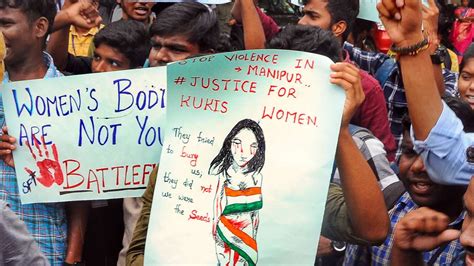 WOMEN'S BODI
ARE NOT YOU
BATTLEF
STOP VIOLENCE IN
→ MANIPUR..
# JUSTICE FOR
KUKIS WOMEN.
They tried
to bury
us;
they did not
we were
the Seeds